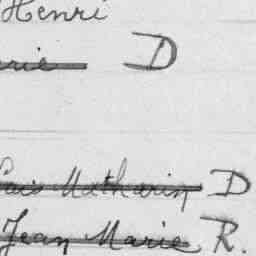 Henri
rie D
çois Mathurin D
Jean Marie R.